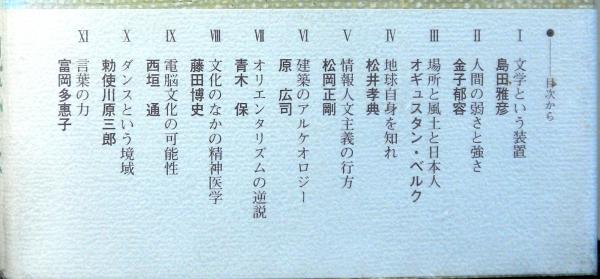 目次から
I 文学という装置
島田雅彦
II 人間の弱さと強さ
金子郁容
III 場所と風土と日本人
オギュスタン・ベルク
IV 地球自身を知れ
松井孝典
V 情報人文主義の行方
松岡正剛
VI 建築のアルケオロジー
原 広司
VII オリエンタリズムの逆説
青木 保
VIII 文化のなかの精神医学
藤田博史
IX 電脳文化の可能性
西垣 通
X ダンスという境域
勅使川原三郎
XI 言葉の力
富岡多惠子